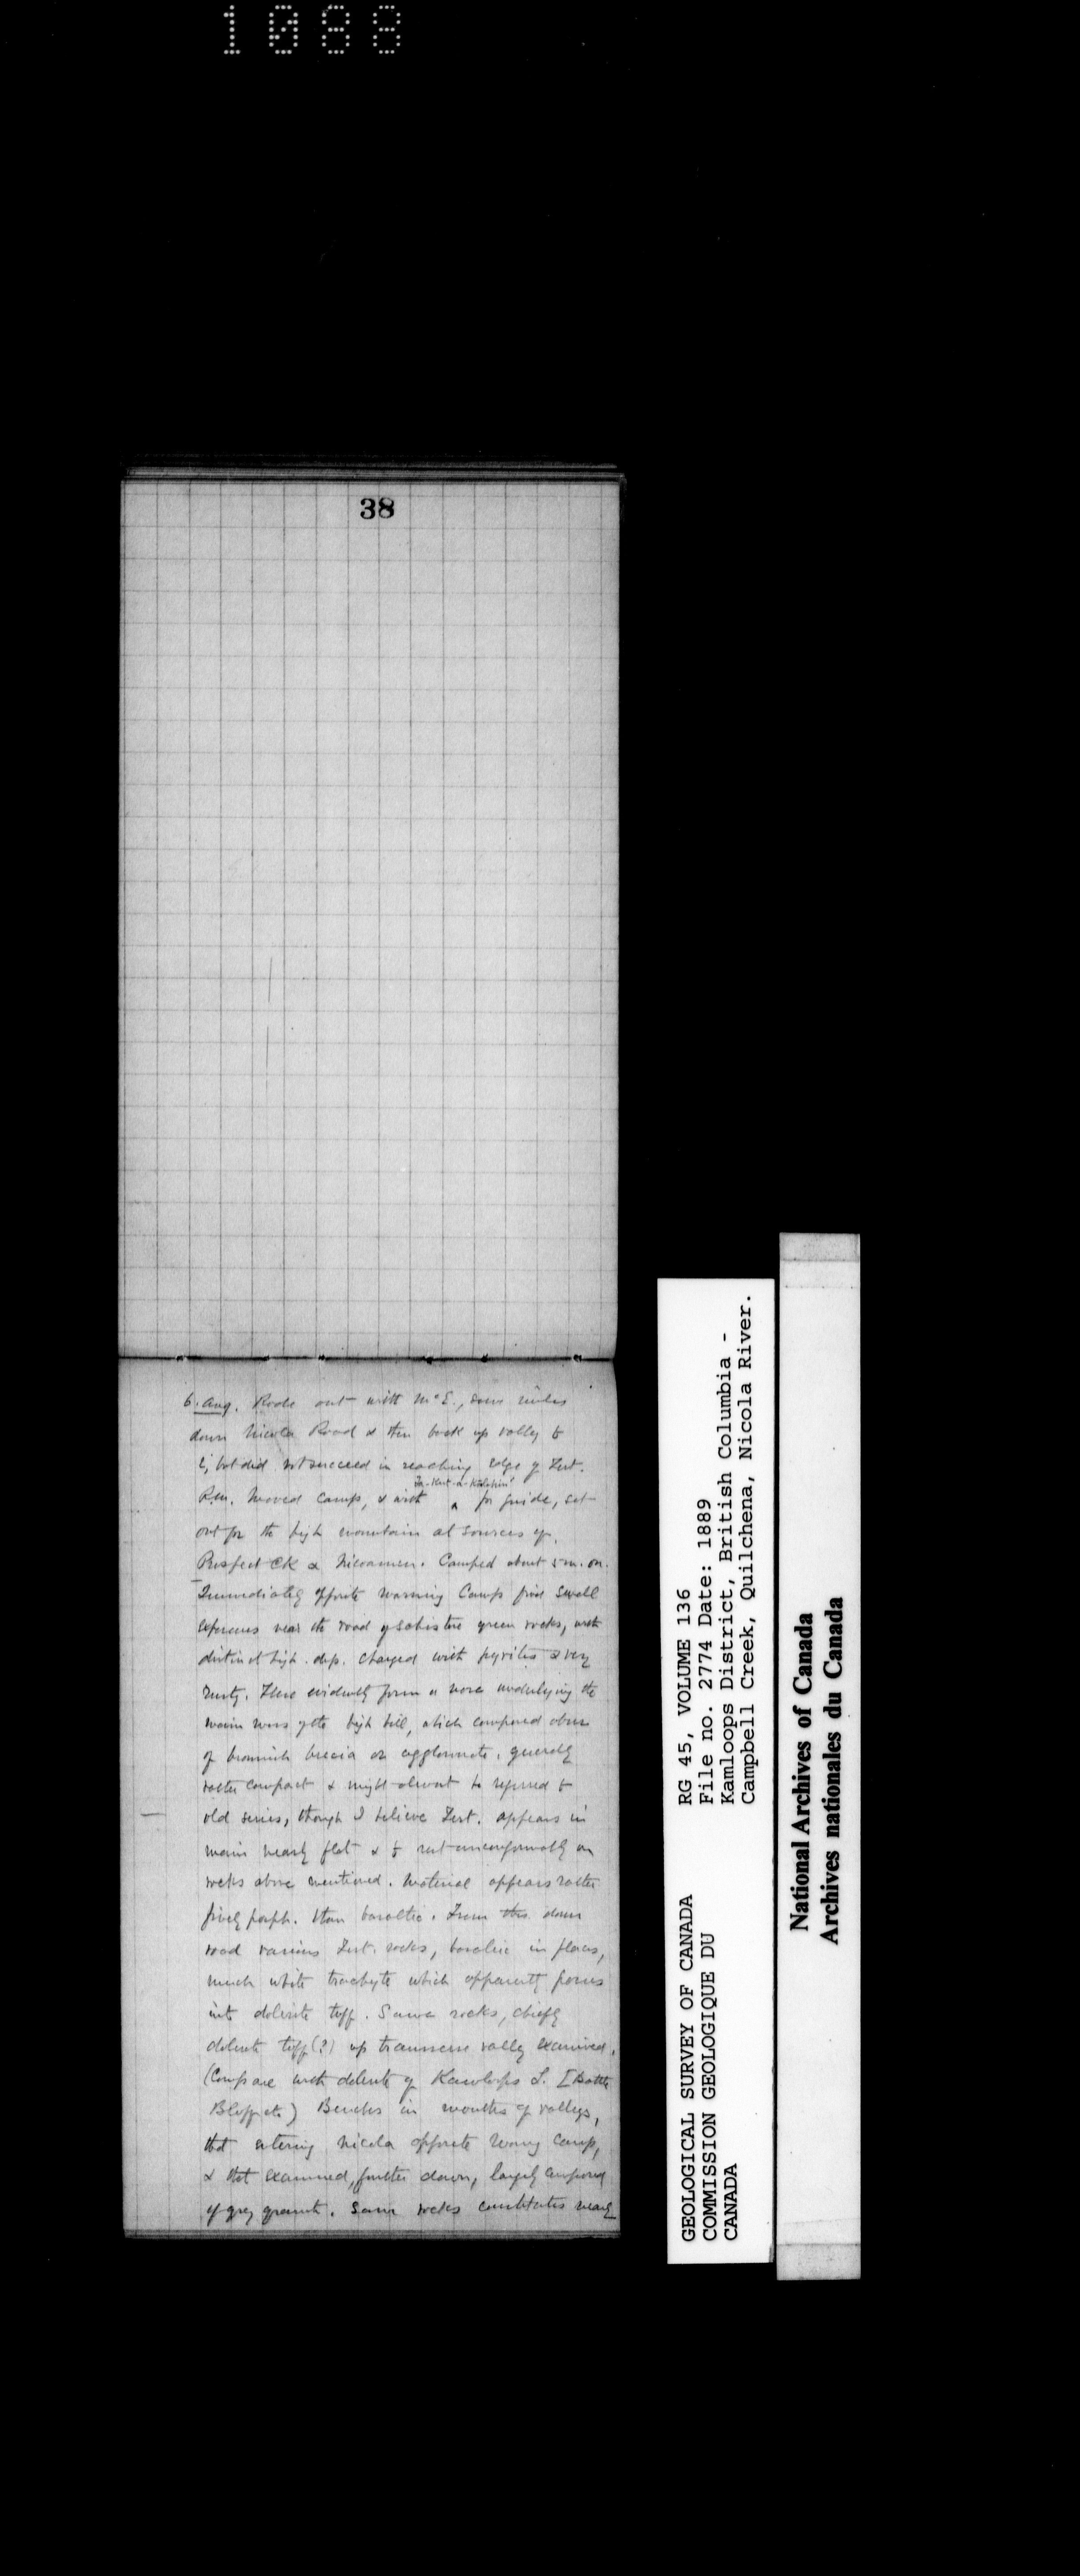 1088
38
6. Aug. Rode out with McE., some miles
down Nicola Road & then back up valley to
but did not succeed in reaching edge of Tert.
P.m. Moved camp, & with for guide, set
out for the high mountains at sources of
Prospect Ck & Nicoamen. Camped about 5 m. on.
Immediately opposite morning Camp find small
exposures near the road of schistose green rocks, with
distinct high dip. charged with pyrites & very
rusty. These evidently form a underlying the
main mass of the high hill, which composed above
of brownish breccia or agglomerate, generally
rather compact & might almost be referred to
old series, though I believe Tert. appears in
main nearly flat & to rest unconformably on
rocks above mentioned. Material appears rather
porph. than basaltic. From this down
road various Tert. rocks, basaltic in places,
much white trachyte which apparently passes
into dolerite tuff. Same rocks, chiefly
dolerite tuff (?) up transverse valley examined.
(Compare with dolerite of Kamloops L. [Battle
Bluff etc.) Benches in mouths of valleys,
that entering Nicola opposite morning camp,
& that examined, further down, largely composed
of grey granite. Same rocks constitutes nearly
GEOLOGICAL SURVEY OF CANADA
COMMISSION GEOLOGIQUE DU
CANADA
RG 45, VOLUME 136
File no. 2774 Date: 1889
Kamloops District, British Columbia -
Campbell Creek, Quilchena, Nicola River.
National Archives of Canada
Archives nationales du Canada